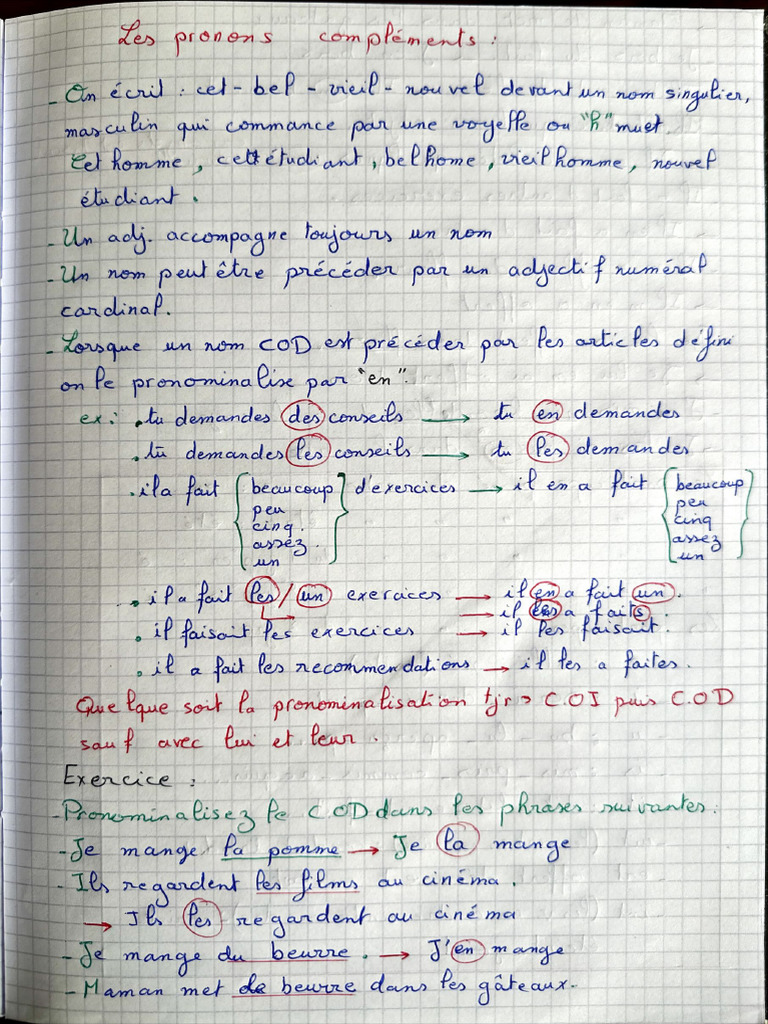 Les pronons compléments :
- On écrit : cet - bel - vieil - nouvel devant un nom singulier,
masculin qui commance par une voyelle ou "h" muet.
Cet homme, cet étudiant, bel home, vieil homme, nouvel
étudiant.
- Un adj. accompagne toujours un nom
- Un nom peut être précéder par un adjectif numéral
cardinal.
- Lorsque un nom COD est précéder par les articles défini
on le pronominalise par "en".
ex : . tu demandes des conseils → tu en demandes
. tu demandes les conseils → tu les demandes
. il a fait [beaucoup] d'exercices → il en a fait {beaucoup}
peu peu
cinq. cinq
assez. assez
un un
. il a fait les / un exercices → il en a fait un.
→ il les a faits.
. il faisait les exercices → il les faisait.
. il a fait les recommendations → il les a faites.
Quelque soit la pronominalisation tjr → C.OI puis C.OD
sauf avec lui et leur.
Exercice :
- Pronominalisez le COD dans les phrases suivantes :
- Je mange la pomme → Je la mange
- Ils regardent les films au cinéma.
→ Ils les regardent au cinéma
- Je mange du beurre. → J'en mange
- Maman met de beurre dans les gâteaux.